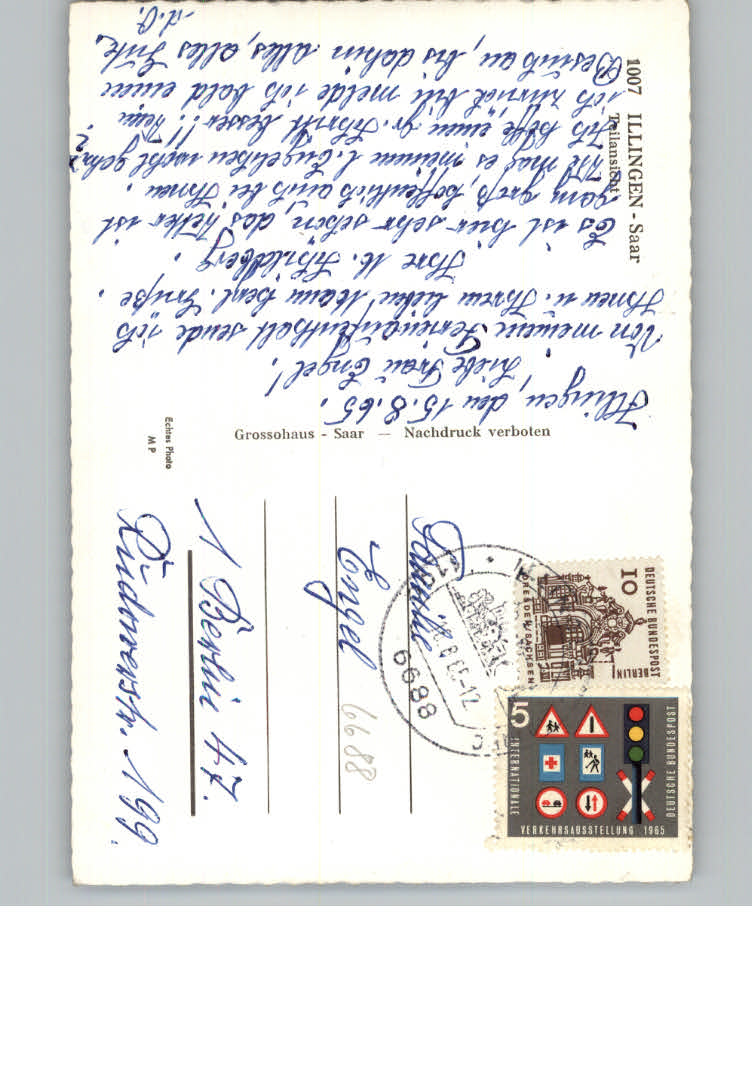 1007 ILLINGEN - Saar
Teilansicht
Illingen, den 15.8.65.
Liebe Frau Engel!
Von meinem Ferienaufenthalt sende ich
Ihnen u. Ihrem lieben Mann herzl. Grüße.
Ihre M. Schildberg.
Es ist hier sehr schön, das Wetter ist
ganz groß, hoffentlich auch bei Ihnen.
Wie mag es meinem l. Engelchen wohl gehn?
Ich hoffe einen gr. Schritt besser!! Wenn
ich zurück bin melde ich bald einen
Besuch an, bis dahin alles, alles Gute.
d. O.
Grossohaus - Saar — Nachdruck verboten
Echtes Photo
MP
Familie
Engel
1 Berlin 47.
Rudowerstr. 199.
6688
6688
-12
10
DEUTSCHE BUNDESPOST
BERLIN
DRESDEN/SACHSEN
5
INTERNATIONALE
VERKEHRSAUSSTELLUNG 1965
DEUTSCHE BUNDESPOST